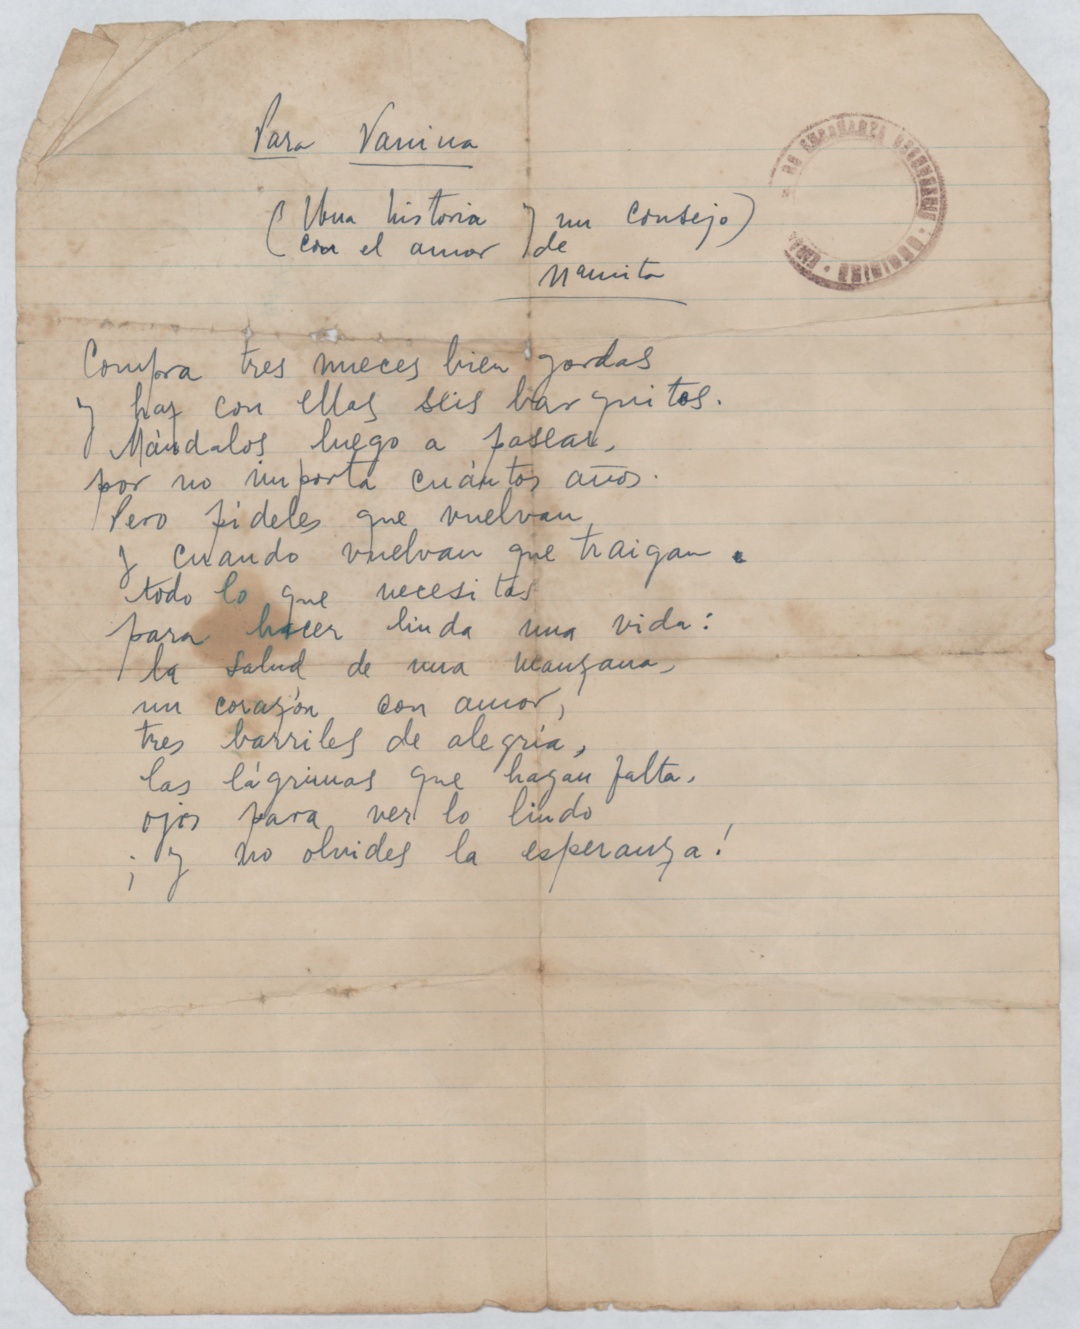 Para Vanina
(Una historia y un consejo)
(con el amor de
Mamita
Compra tres nueces bien gordas
y haz con ellas seis barquitos.
Mándalos luego a pasear,
por no importa cuántos años.
Pero pídeles que vuelvan
y cuando vuelvan que traigan
todo lo que necesitas
para hacer linda una vida:
la salud de una manzana,
un corazón con amor,
tres barriles de alegría,
las lágrimas que hagan falta,
ojos para ver lo lindo
¡y no olvides la esperanza!
DE ENSEÑANZA SECUNDARIA